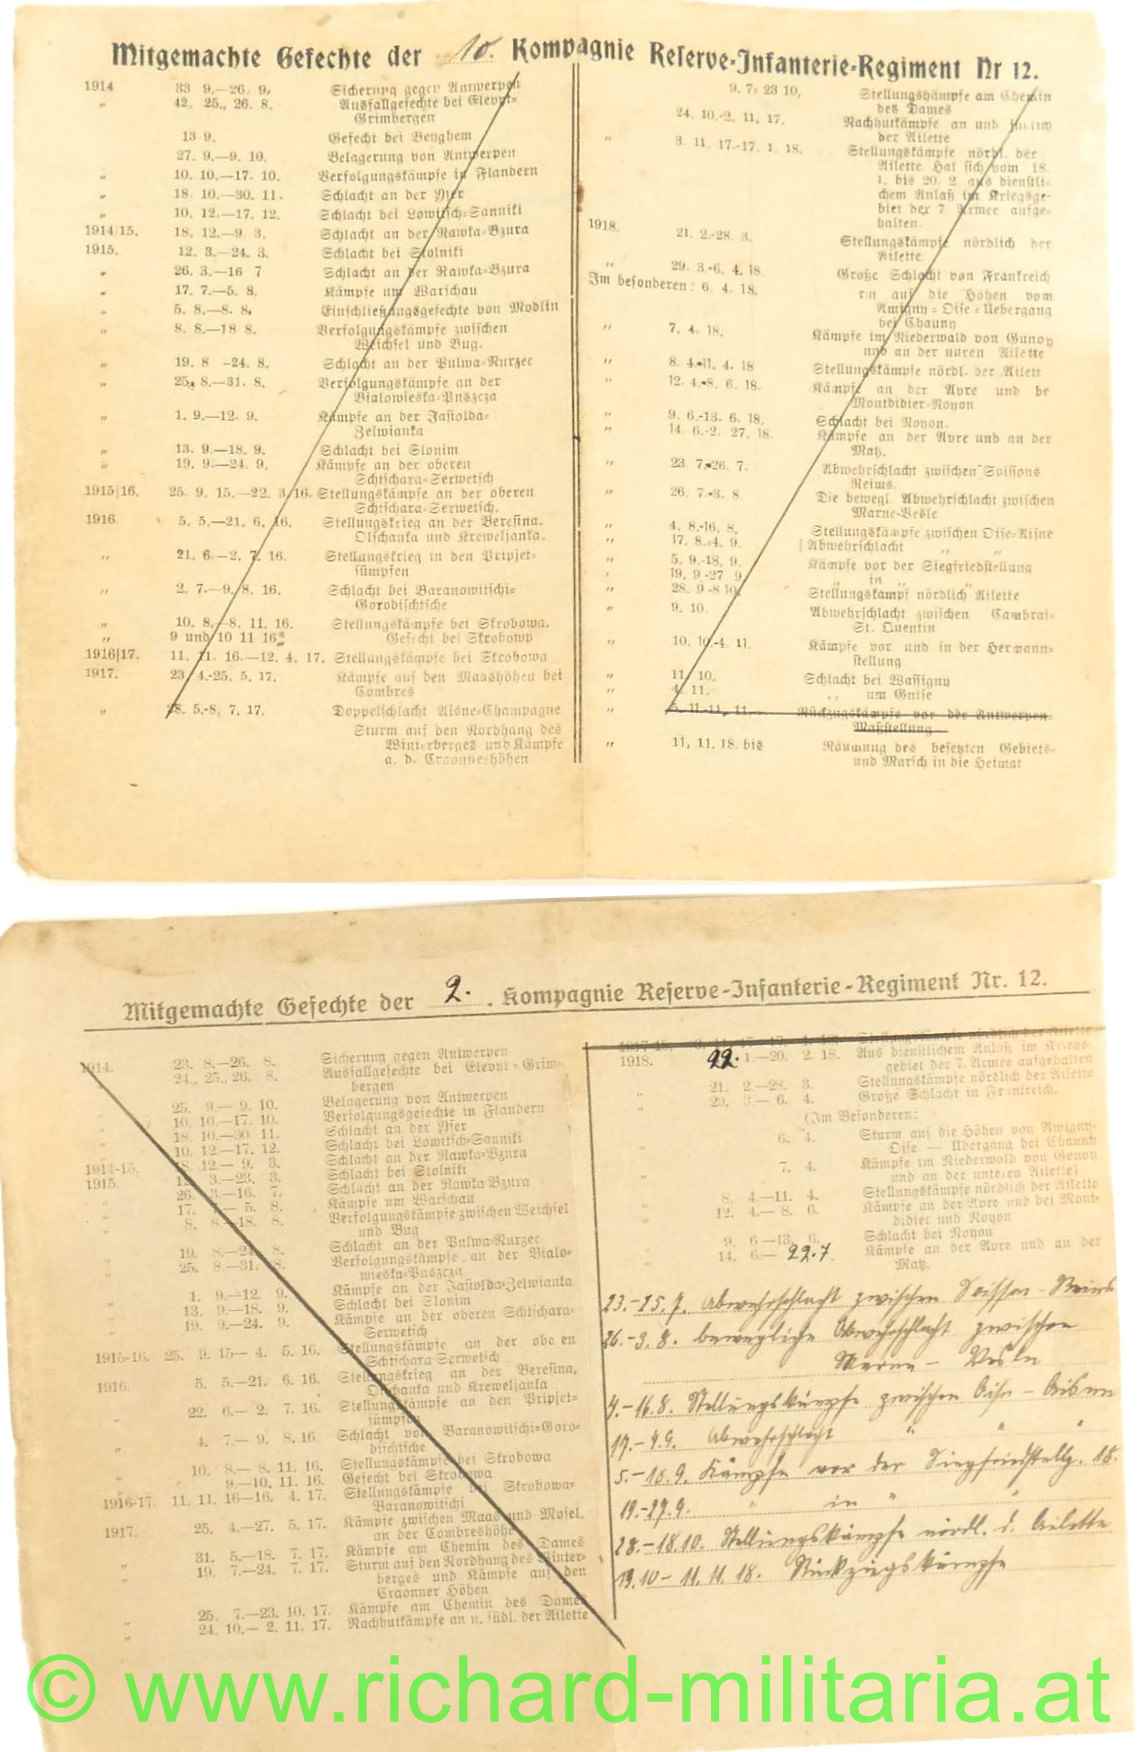 Mitgemachte Gefechte der 10. Kompagnie Reserve-Infanterie-Regiment Nr 12.
1914 33 9.—26. 9. Sicherung gegen Antwerpen
" 42. 25., 26. 8. Ausfallgefechte bei Elewyt-
Grimbergen
13 9. Gefecht bei Beyghem
27. 9.—9. 10. Belagerung von Antwerpen
" 10. 10.—17. 10. Verfolgungskämpfe in Flandern
" 18. 10.—30. 11. Schlacht an der Yser
" 10. 12.—17. 12. Schlacht bei Lowitsch-Sanniki
1914/15. 18. 12.—9. 3. Schlacht an der Rawka-Bzura
1915. 12. 3.—24. 3. Schlacht bei Stolniki
" 26. 3.—16 7 Schlacht an der Rawka-Bzura
" 17. 7.—5. 8. Kämpfe um Warschau
" 5. 8.—8. 8. Einschließungsgefechte von Modlin
" 8. 8.—18 8. Verfolgungskämpfe zwischen
Weichsel und Bug.
" 19. 8 -24. 8. Schlacht an der Pulwa-Nurzec
" 25. 8.—31. 8. Verfolgungskämpfe an der
Bialowieska-Puszcza
" 1. 9.—12. 9. Kämpfe an der Jasiolda-
Zelwianka
" 13. 9.—18. 9. Schlacht bei Slonim
" 19. 9.—24. 9. Kämpfe an der oberen
Schtschara-Serwetsch
1915|16. 25. 9. 15.—22. 3. 16. Stellungskämpfe an der oberen
Schtschara-Serwetsch.
1916. 5. 5.—21. 6. 16. Stellungskrieg an der Beresina.
Olschanka und Kreweljanka.
" 21. 6.—2. 7. 16. Stellungskrieg in den Pripjet-
sümpfen
" 2. 7.—9. 8. 16. Schlacht bei Baranowitschi-
Gorodischtsche
" 10. 8.—8. 11. 16. Stellungskämpfe bei Skrobowa.
" 9 und 10 11 16. Gefecht bei Skrobowo
1916|17. 11. 11. 16.—12. 4. 17. Stellungskämpfe bei Skrobowa
1917. 23. 4.-25. 5. 17. Kämpfe auf den Maashöhen bei
Combres
" 28. 5.-8. 7. 17. Doppelschlacht Aisne-Champagne
Sturm auf den Nordhang des
Winterberges und Kämpfe
a. d. Craonnerhöhen
9. 7. 23 10. Stellungskämpfe am Chemin
des Dames
24. 10.-2. 11. 17. Nachhutkämpfe an und südlich
der Ailette
" 3. 11. 17.-17. 1. 18. Stellungskämpfe nördl. der
Ailette Hat sich vom 18.
1. bis 20. 2 aus dienstli-
chem Anlaß im Kriegsge-
biet der 7 Armee aufge-
halten.
1918. 21. 2.-28. 3. Stellungskämpfe nördlich der
Ailette
" 29. 3.-6. 4. 18. Große Schlacht von Frankreich
Im besonderen: 6. 4. 18. auf die Höhen vom
Amigny-Oise-Uebergang
bei Chauny
" 7. 4. 18. Kämpfe im Niederwald von Gunoy
und an der unteren Ailette
" 8. 4.-11. 4. 18 Stellungskämpfe nördl. der Ailett
" 12. 4.-8. 6. 18. Kämpfe an der Avre und be
Montdidier-Noyon
" 9. 6.-13. 6. 18. Schlacht bei Noyon.
" 14. 6.-2. 27. 18. Kämpfe an der Avre und an der
Matz.
" 23. 7.-26. 7. Abwehrschlacht zwischen Soissons
Reims.
" 26. 7.-3. 8. Die bewegl. Abwehrschlacht zwischen
Marne-Vesle
" 4. 8.-16. 8. Stellungskämpfe zwischen Oise-Aisne
" 17. 8.-4. 9. Abwehrschlacht " "
" 5. 9.-18. 9. Kämpfe vor der Siegfriedstellung
19. 9.-27 9. " in " "
" 28. 9 -8 10. Stellungskampf nördlich Ailette
" 9. 10. Abwehrschlacht zwischen Cambrai-
St. Quentin
" 10. 10.-4. 11. Kämpfe vor und in der Hermann-
stellung
" 11. 10. Schlacht bei Wassigny
" 4. 11. " um Guise
" 5. 11-11. 11. Rückzugskämpfe vor der Antwerpen-
Maßstellung
" 11. 11. 18. bis Räumung des besetzten Gebiets-
und Marsch in die Heimat
Mitgemachte Gefechte der 2. Kompagnie Reserve-Infanterie-Regiment Nr. 12.
1914. 23. 8.—26. 8. Sicherung gegen Antwerpen
24., 25., 26. 8. Ausfallgefechte bei Elewyt-Grim-
bergen
25. 9.— 9. 10. Belagerung von Antwerpen
10. 10.—17. 10. Verfolgungsgefechte in Flandern
18. 10.—30. 11. Schlacht an der Yser
10. 12.—17. 12. Schlacht bei Lowitsch-Sanniki
1914-15. 18. 12.— 9. 3. Schlacht an der Rawka-Bzura
1915. 12. 3.—23. 3. Schlacht bei Stolniki
" 26. 3.—16. 7. Schlacht an der Rawka Bzura
17. 7.— 5. 8. Kämpfe um Warschau
" 8. 8.—18. 8. Verfolgungskämpfe zwischen Weichsel
und Bug
19. 8.—24. 8. Schlacht an der Pulwa-Nurzec
25. 8.—31. 8. Verfolgungskämpfe an der Bialo-
wieska-Puszcza
1. 9.—12. 9. Kämpfe an der Jasiolda-Zelwianka
13. 9.—18. 9. Schlacht bei Slonim
19. 9.—24. 9. Kämpfe an der oberen Schtschara-
Serwetsch
1915-16. 25. 9. 15— 4. 5. 16. Stellungskämpfe an der obe en
Schtschara Serwetsch
1916. 5. 5.—21. 6. 16. Stellungskrieg an der Beresina,
Olschanka und Kreweljanka
" 22. 6.— 2. 7. 16 Stellungskämpfe an den Pripjet-
sümpfen
" 4. 7.— 9. 8. 16 Schlacht von Baranowitschi-Goro-
dischtsche
10. 8.— 8. 11. 16. Stellungskämpfe bei Skrobowa
9.—10. 11. 16. Gefecht bei Skrobowa
1916-17. 11. 11. 16—16. 4. 17. Stellungskämpfe bei Skrobowa-
Baranowitschi
1917. 25. 4.—27. 5. 17. Kämpfe zwischen Maas und Mosel.
an der Combreshöhe
" 31. 5.—18. 7. 17. Kämpfe am Chemin des Dames
" 19. 7.—24. 7. 17. Sturm auf den Nordhang des Winter-
berges und Kämpfe auf den
Craonner Höhen
" 25. 7.—23. 10. 17. Kämpfe am Chemin des Dames
" 24. 10.— 2. 11. 17. Nachhutkämpfe an u. südl. der Ailette
1918. 22. 1.—20. 2. 18. Aus dienstlichem Anlaß im Kriegs-
gebiet der 7. Armee aufgehalten
" 21. 2.—28. 3. Stellungskämpfe nördlich der Ailette
" 29. 3.— 6. 4. Große Schlacht in Frankreich.
(Im Besonderen:
6. 4. Sturm auf die Höhen von Amigny-
Oise — Übergang bei Chauny
7. 4. Kämpfe im Niederwald von Genoy
und an der unteren Ailette)
" 8. 4.—11. 4. Stellungskämpfe nördlich der Ailette
" 12. 4.— 8. 6. Kämpfe an der Avre und bei Mont-
didier und Noyon
" 9. 6—13. 6. Schlacht bei Noyon
" 14. 6.— 22.7. Kämpfe an der Avre und an der
Matz.
23.-25.7. Abwehrschlacht zwischen Soisson - Reims
26.-3.8. bewegliche Abwehrschlacht zwischen
Marne - Vesle
4.-16.8. Stellungskämpfe zwischen Oise - Aisne
17.-4.9. Abwehrschlacht " " "
5.-18.9. Kämpfe vor der Siegfriedstellg. 18.
19.-27.9. " in " "
28.-18.10. Stellungskämpfe nördl. d. Ailette
19.10 - 11.11.18. Rückzugskämpfe
© www.richard-militaria.at